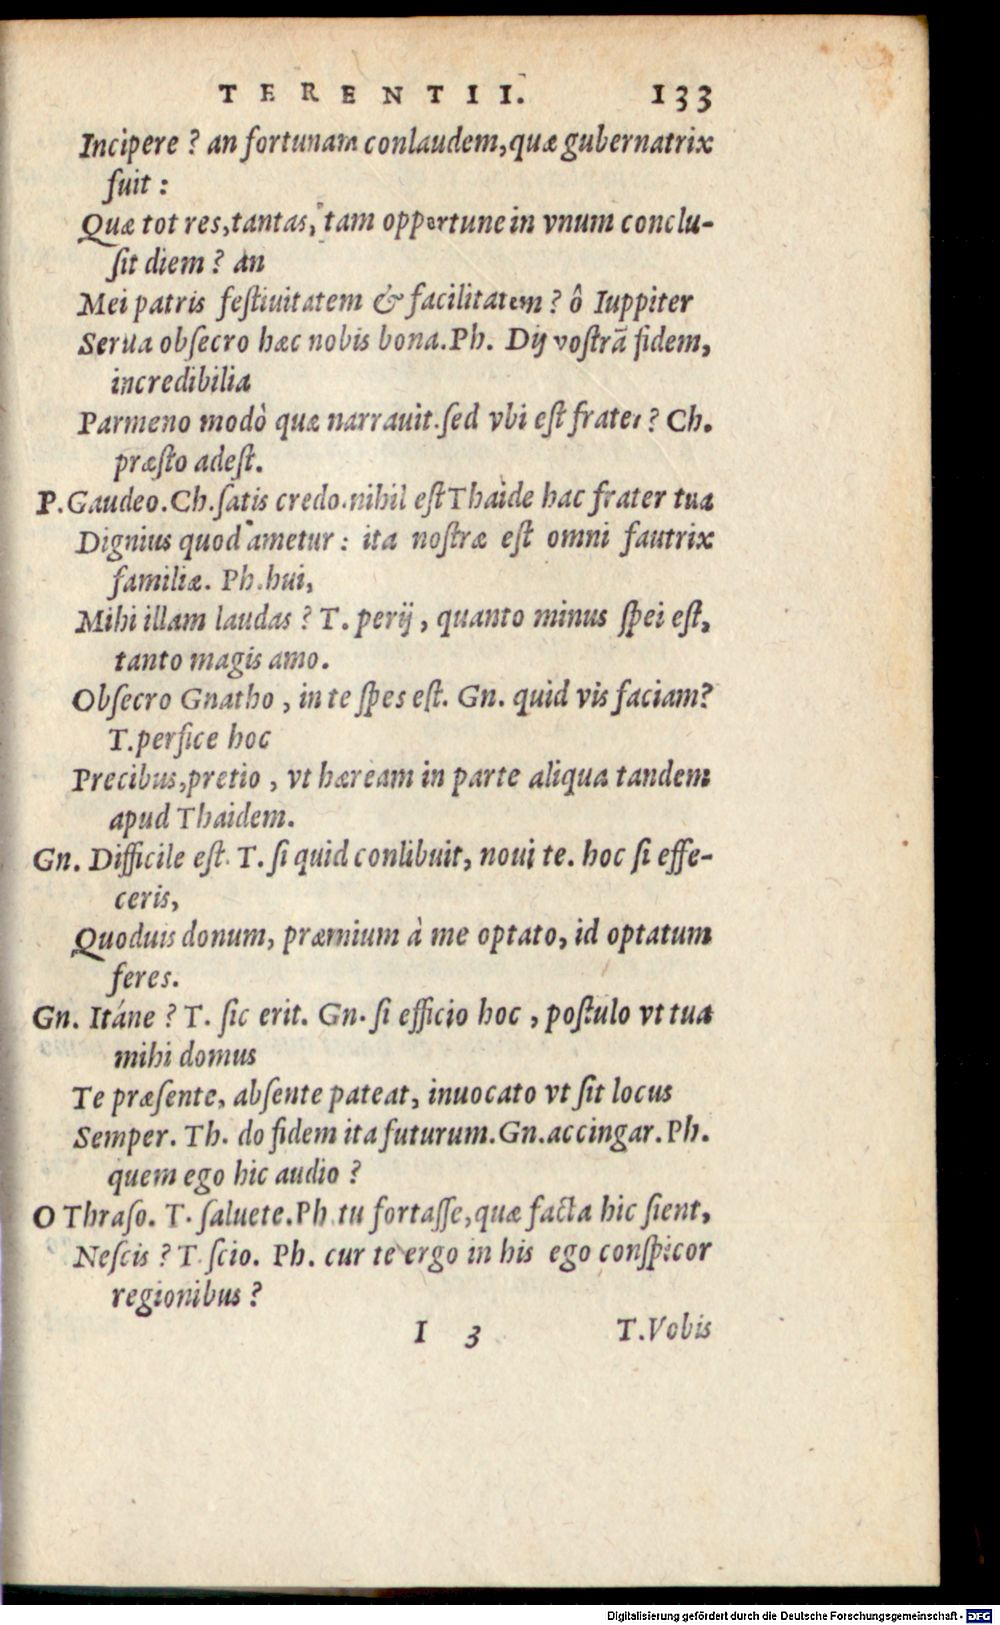 TERENTII. 133
Incipere ? an fortunam conlaudem, quæ gubernatrix
fuit :
Quæ tot res, tantas, tam opportune in vnum conclu-
ſit diem ? an
Mei patris feſtiuitatem & facilitatem ? ô Iuppiter
Serua obſecro hæc nobis bona. Ph. Dij voſtrā fidem,
incredibilia
Parmeno modò quæ narrauit. ſed vbi eſt frater ? Ch.
præſto adeſt.
P. Gaudeo. Ch. ſatis credo. nihil eſt Thaide hac frater tua
Dignius quod ametur : ita noſtræ eſt omni fautrix
familiæ. Ph. hui,
Mihi illam laudas ? T. perij, quanto minus ſpei eſt,
tanto magis amo.
Obſecro Gnatho, in te ſpes eſt. Gn. quid vis faciam?
T. perfice hoc
Precibus, pretio, vt hæream in parte aliqua tandem
apud Thaidem.
Gn. Difficile eſt. T. ſi quid conlibuit, noui te. hoc ſi effe-
ceris,
Quoduis donum, præmium à me optato, id optatum
feres.
Gn. Itáne ? T. ſic erit. Gn. ſi efficio hoc, poſtulo vt tua
mihi domus
Te præſente, abſente pateat, inuocato vt ſit locus
Semper. Th. do fidem ita futurum. Gn. accingar. Ph.
quem ego hic audio ?
O Thraſo. T. ſaluete. Ph. tu fortaſſe, quæ facta hic ſient,
Neſcis ? T. ſcio. Ph. cur te ergo in his ego conſpicor
regionibus ?
I 3 T. Vobis
Digitalisierung gefördert durch die Deutsche Forschungsgemeinschaft - DFG